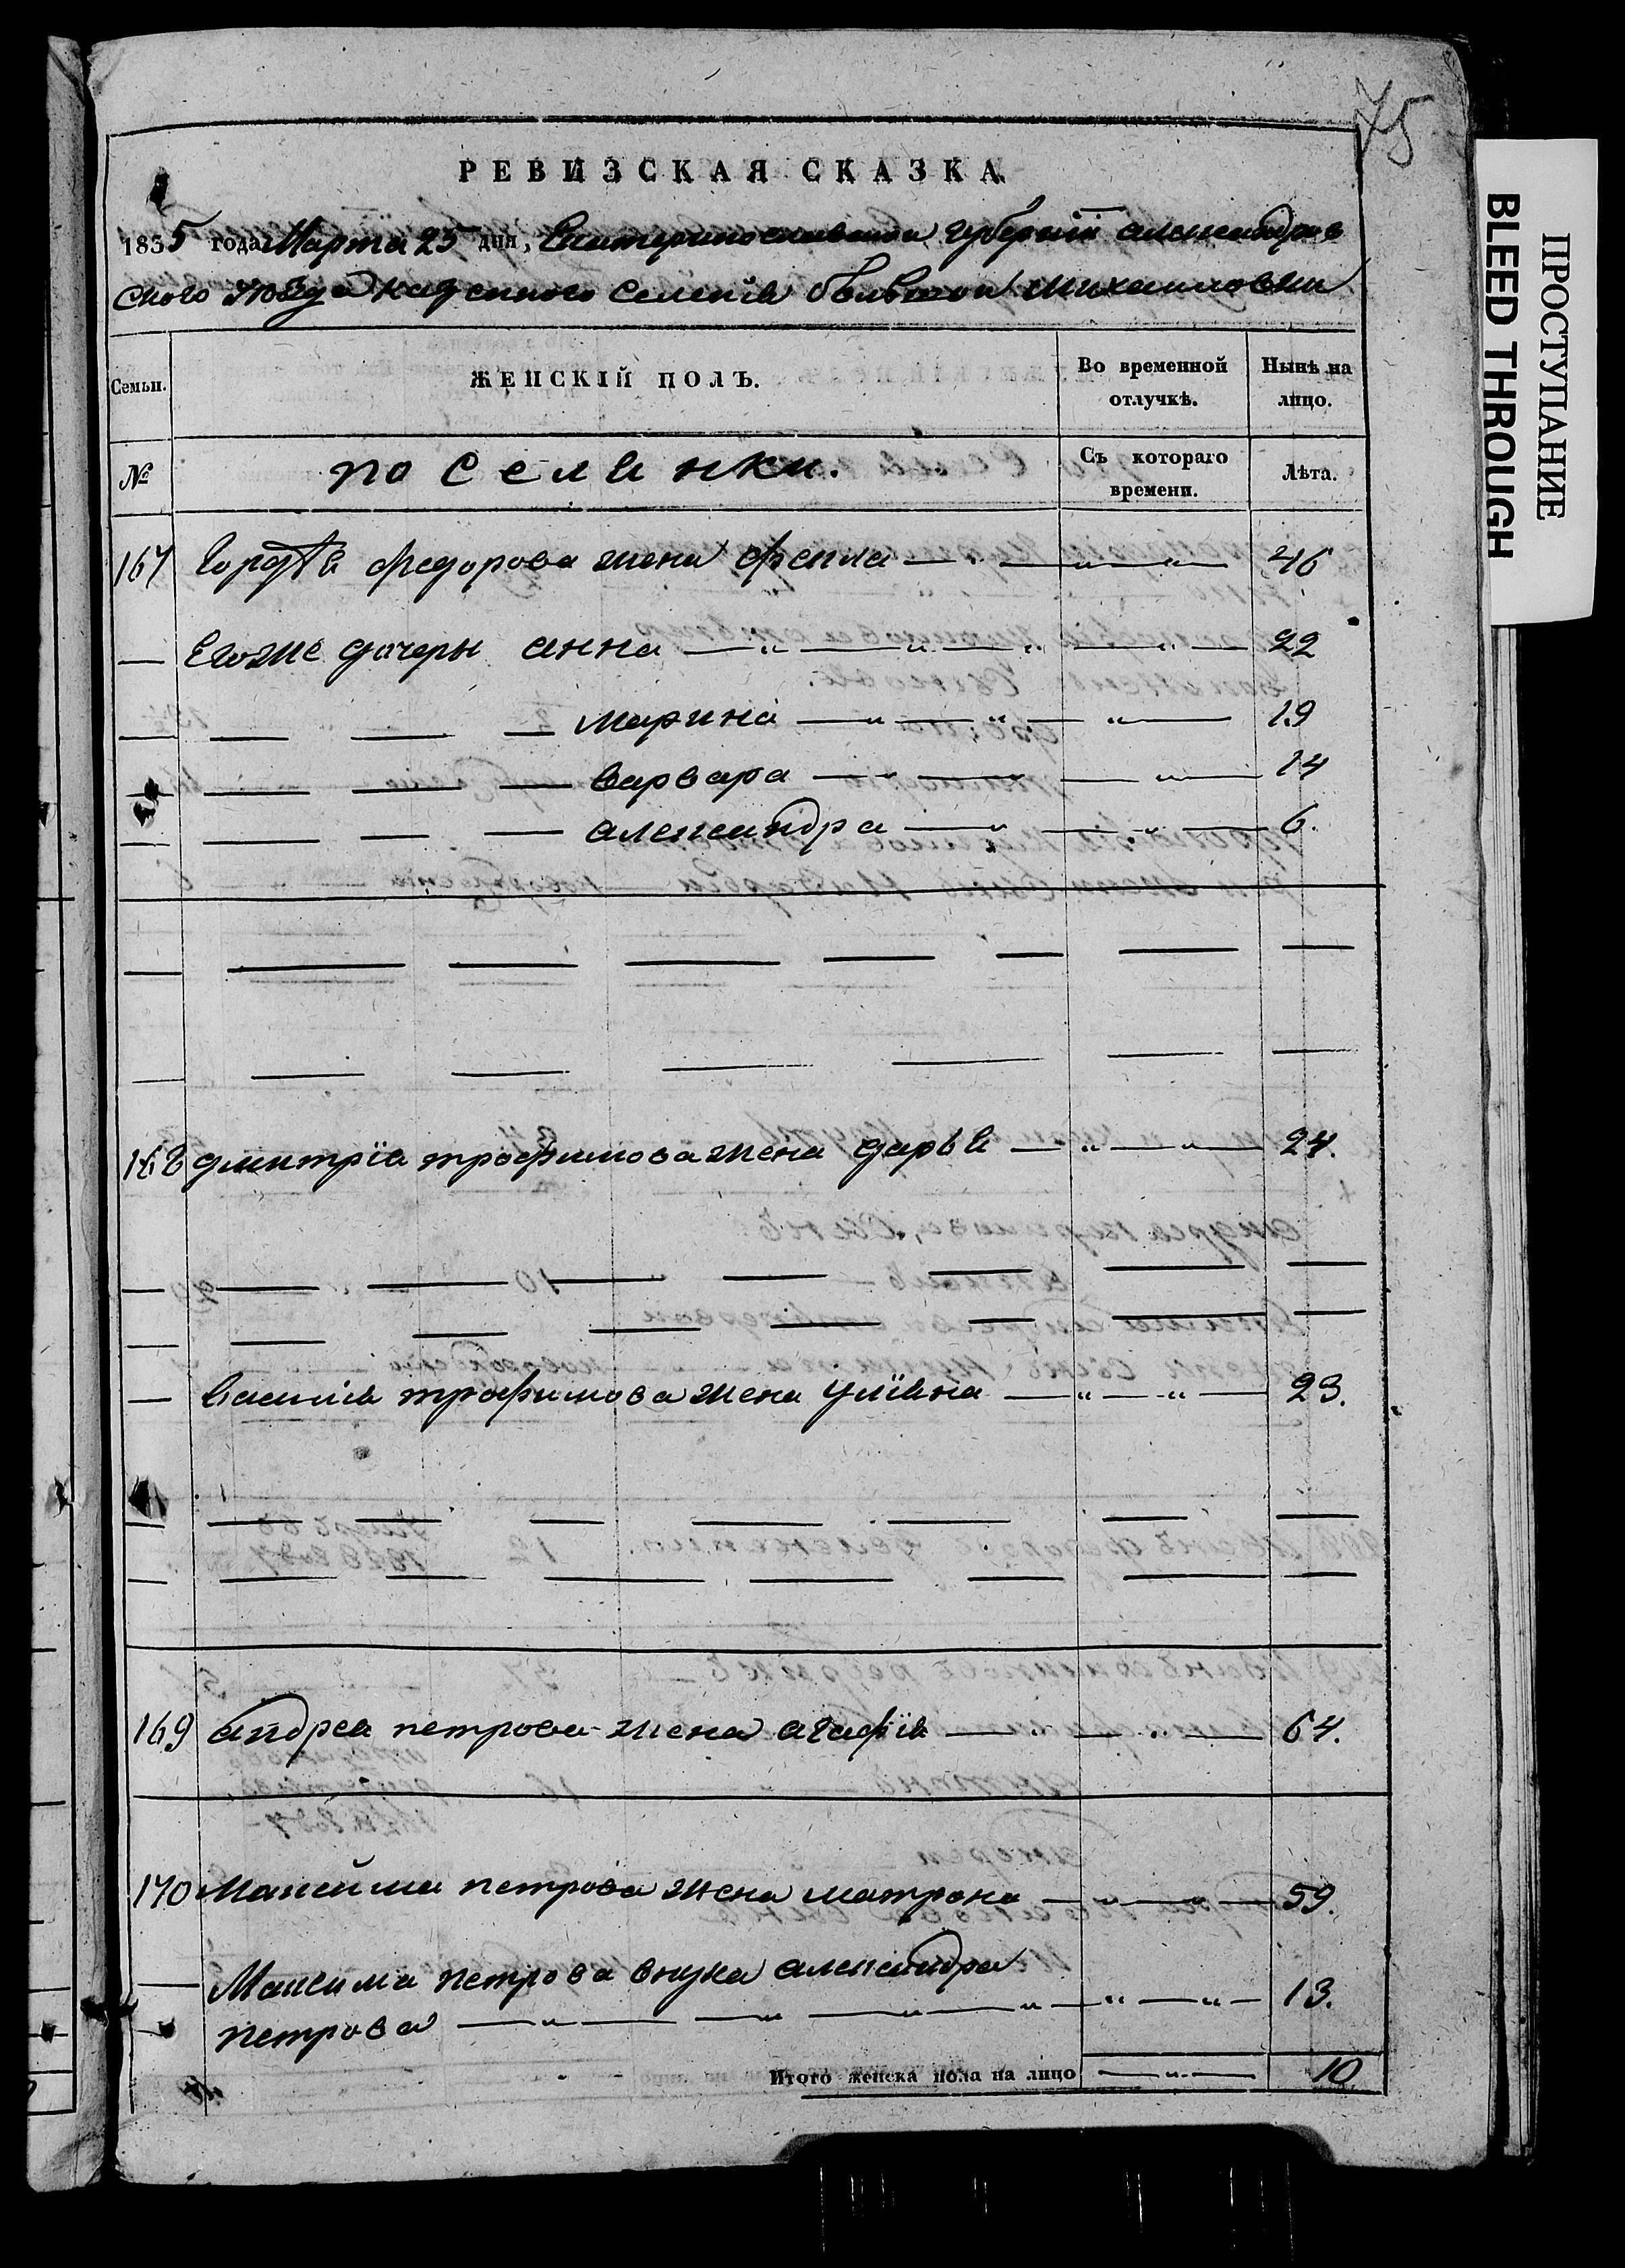 75
РЕВИЗСКАЯ СКАЗКА
1835 года Марта 25 дня, Екатеринославской губернїи александров
ского уѣзда казенного селенїя большой михайловки
Семьи. ЖЕНСКІЙ ПОЛЪ. Во временной отлучкѣ. Нынѣ на лицо.
№ поселянки. Съ котораго времени. Лѣта.
167 Гордѣя федорова жена фекла — " — " — " — 46
— Егоже дочеры анна — " — " — " — " — 22
— — — — марина — " — " — " — 19
— — — — варвара — " — " — " — 14
— — — — александра — " — " — 6.
168 дмитрїа трофимова жена дарья — " — " — 24.
— василїя трофимова жена улїяна — " — " — 23.
169 андрея петрова жена агафїя — " — " — 64.
170 Максима петрова жена матрона — " — " — 59.
— Максима петрова внука александра
— петрова — " — " — " — " — " — " — 13.
Итого женска пола на лицо — " — 10
ПРОСТУПАНИЕ
BLEED THROUGH